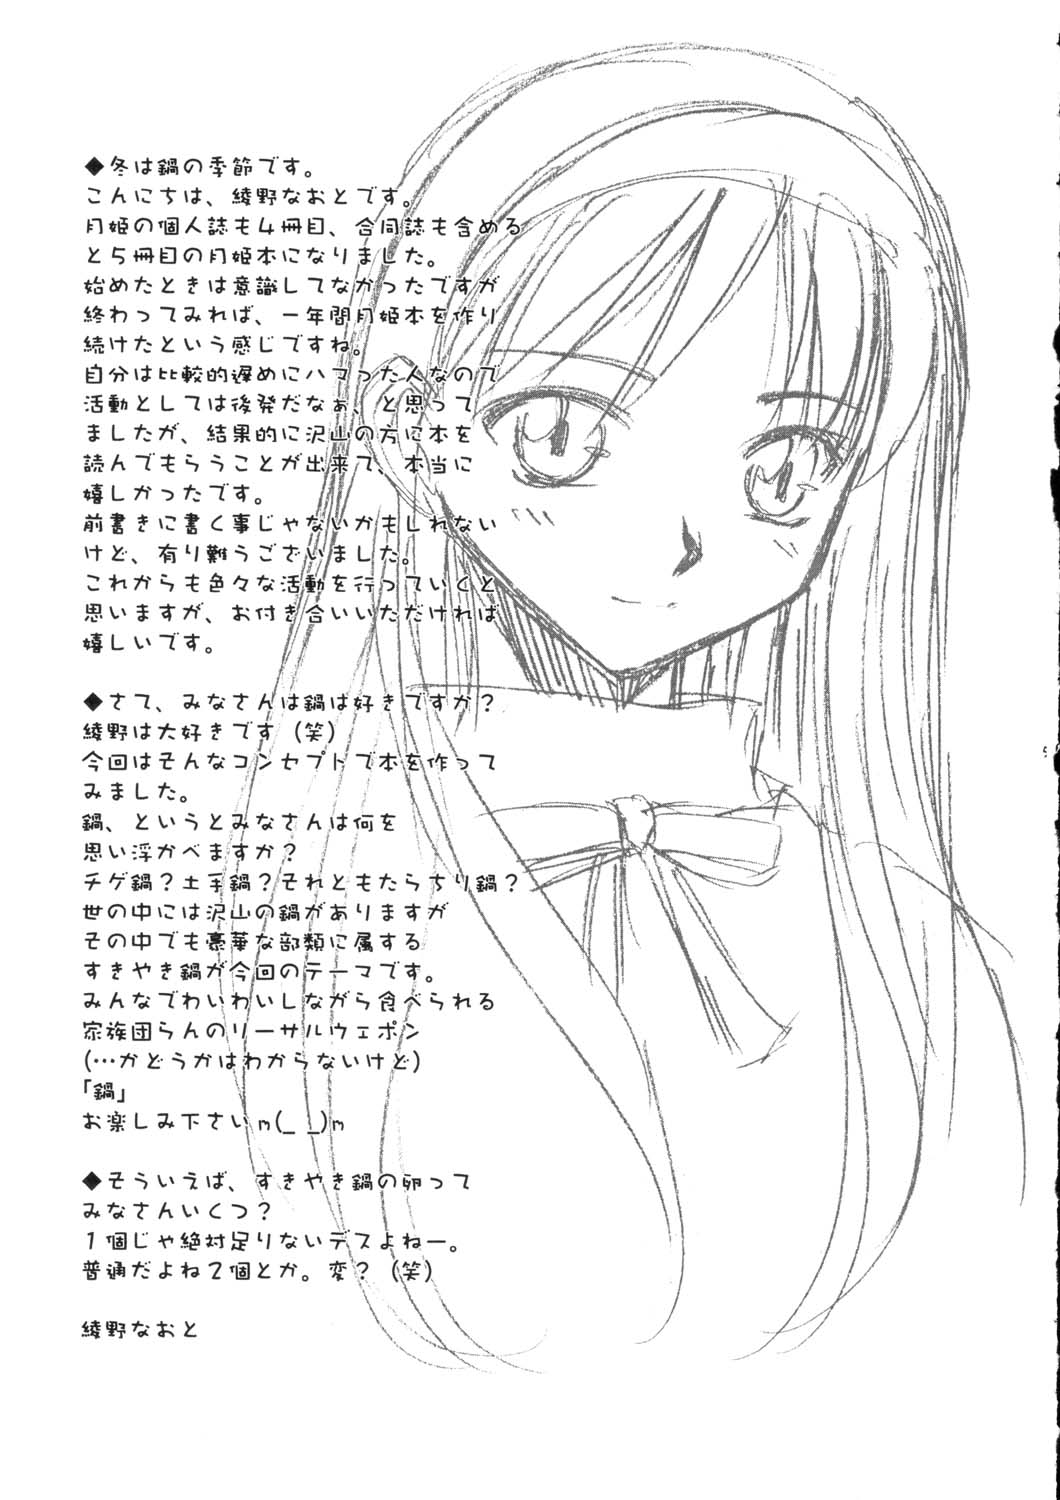 ◆冬は鍋の季節です。
こんにちは、綾野なおとです。
月姫の個人誌も4冊目、合同誌も含める
と5冊目の月姫本になりました。
始めたときは意識してなかったですが
終わってみれば、一年間月姫本を作り
続けたという感じですね。
自分は比較的遅めにハマった人なので
活動としては後発だなぁ、と思って
ましたが、結果的に沢山の方に本を
読んでもらうことが出来て、本当に
嬉しかったです。
前書きに書く事じゃないかもしれない
けど、有り難うございました。
これからも色々な活動を行っていくと
思いますが、お付き合いいただければ
嬉しいです。
◆さて、みなさんは鍋は好きですか？
綾野は大好きです（笑）
今回はそんなコンセプトで本を作って
みました。
鍋、というとみなさんは何を
思い浮かべますか？
チゲ鍋？土手鍋？それともたらちり鍋？
世の中には沢山の鍋がありますが
その中でも豪華な部類に属する
すきやき鍋が今回のテーマです。
みんなでわいわいしながら食べられる
家族団らんのリーサルウェポン
(…かどうかはわからないけど)
「鍋」
お楽しみ下さいm(_ _)m
◆そういえば、すきやき鍋の卵って
みなさんいくつ？
1個じゃ絶対足りないデスよねー。
普通だよね2個とか。変？（笑）
綾野なおと